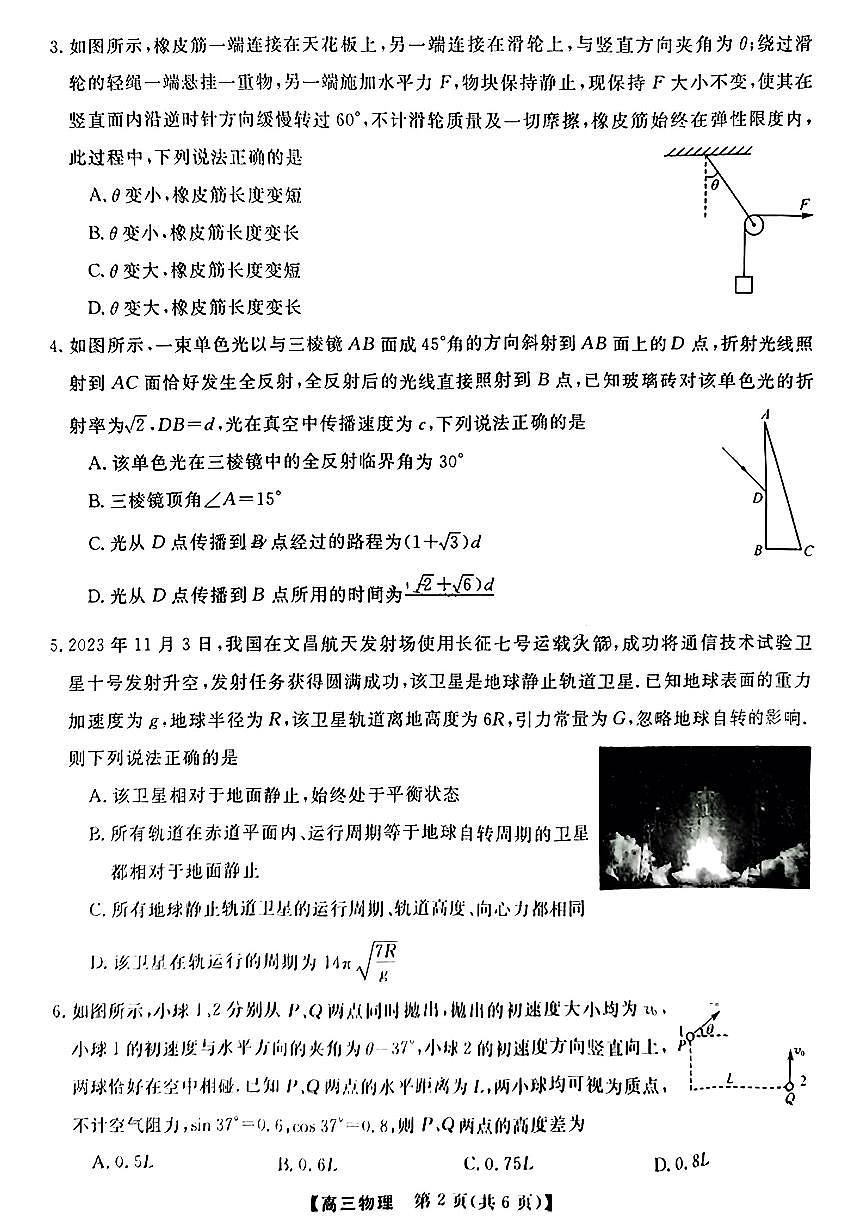 3. 如图所示,橡皮筋一端连接在天花板上,另一端连接在滑轮上,与竖直方向夹角为 θ;绕过滑
轮的轻绳一端悬挂一重物,另一端施加水平力 F,物块保持静止,现保持 F 大小不变,使其在
竖直面内沿逆时针方向缓慢转过 60°,不计滑轮质量及一切摩擦,橡皮筋始终在弹性限度内,
此过程中,下列说法正确的是
A. θ 变小,橡皮筋长度变短
B. θ 变小,橡皮筋长度变长
C. θ 变大,橡皮筋长度变短
D. θ 变大,橡皮筋长度变长
θ
F
4. 如图所示,一束单色光以与三棱镜 AB 面成 45°角的方向斜射到 AB 面上的 D 点,折射光线照
射到 AC 面恰好发生全反射,全反射后的光线直接照射到 B 点,已知玻璃砖对该单色光的折
射率为√2,DB=d,光在真空中传播速度为 c,下列说法正确的是
A. 该单色光在三棱镜中的全反射临界角为 30°
B. 三棱镜顶角∠A=15°
C. 光从 D 点传播到 B 点经过的路程为(1+√3)d
D. 光从 D 点传播到 B 点所用的时间为(√2+√6)d
A
D
B
C
5. 2023 年 11 月 3 日,我国在文昌航天发射场使用长征七号运载火箭,成功将通信技术试验卫
星十号发射升空,发射任务获得圆满成功,该卫星是地球静止轨道卫星.已知地球表面的重力
加速度为 g,地球半径为 R,该卫星轨道离地高度为 6R,引力常量为 G,忽略地球自转的影响.
则下列说法正确的是
A. 该卫星相对于地面静止,始终处于平衡状态
B. 所有轨道在赤道平面内、运行周期等于地球自转周期的卫星
都相对于地面静止
C. 所有地球静止轨道卫星的运行周期、轨道高度、向心力都相同
D. 该卫星在轨运行的周期为 14π√(7R/g)
6. 如图所示,小球 1、2 分别从 P、Q 两点同时抛出,抛出的初速度大小均为 v₀,
小球 1 的初速度与水平方向的夹角为 θ=37°,小球 2 的初速度方向竖直向上,
两球恰好在空中相碰.已知 P、Q 两点的水平距离为 L,两小球均可视为质点,
不计空气阻力,sin 37°=0.6,cos 37°=0.8,则 P、Q 两点的高度差为
A. 0.5L B. 0.6L C. 0.75L D. 0.8L
1
P
θ
v₀
L
2
Q
【高三物理 第 2 页(共 6 页)】